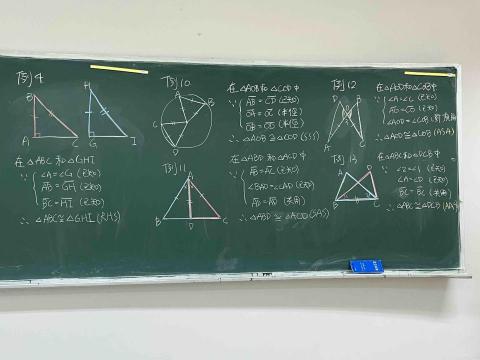 例4
B
A
C
H
G
I
在△ABC和△GHI
∵
∠A=∠G (已知)
AB=GH (已知)
BC=HI (已知)
∴ △ABC≅△GHI (RHS)
例10
A
B
C
D
在△AOB和△COD中
∵
AB=CD (已知)
OA=OC (半徑)
OB=OD (半徑)
∴ △AOB≅△COD (SSS)
例11
A
B
D
C
在△ABD和△ACD中
∵
AB=AC (已知)
∠BAD=∠CAD (已知)
AD=AD (共用)
∴ △ABD≅△ACD (SAS)
例12
D
B
A
C
在△AOD和△COB中
∵
∠A=∠C (已知)
AO=CO (已知)
∴ △AOD≅△COB (ASA)
例13
A
D
B
C
在△ABC和△DCB中
∵
∠2=∠1 (已知)
∠A=∠D (已知)
BC=BC (共用)
∴ △ABC≅△DCB (AAS)